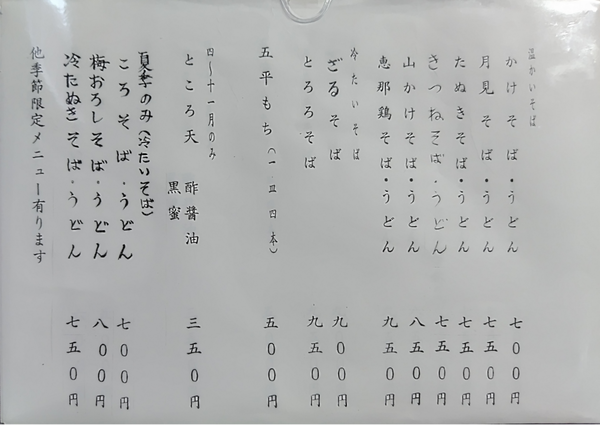 温かいそば
かけそば・うどん 七〇〇円
月見そば・うどん 七五〇円
たぬきそば・うどん 七五〇円
きつねそば・うどん 七五〇円
山かけそば・うどん 八五〇円
恵那鶏そば・うどん 九五〇円
冷たいそば
ざるそば 九〇〇円
とろろそば 九五〇円
五平もち(一皿四本) 五〇〇円
四～十一月のみ
ところ天 酢醤油 三五〇円
黒蜜
夏季のみ(冷たいそば)
ころそば・うどん 七〇〇円
梅おろしそば・うどん 八〇〇円
冷たぬきそば・うどん 七五〇円
他季節限定メニュー有ります